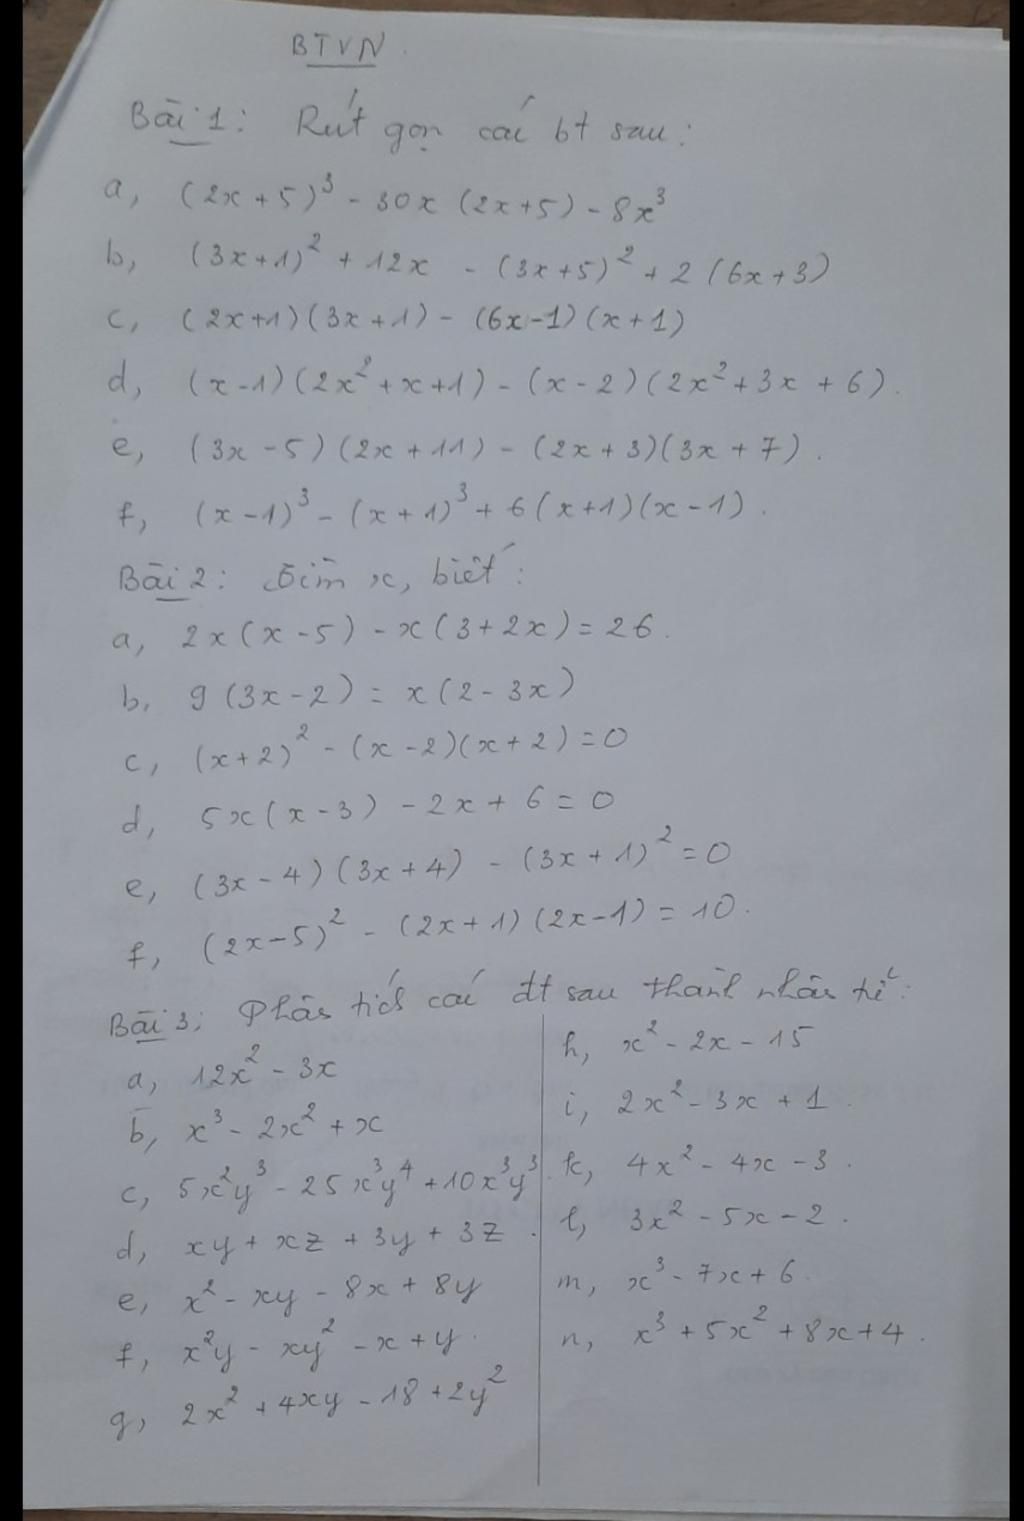 BTVN.
Bài 1: Rút gọn các bt sau:
a, (2x+5)³ - 30x (2x+5) - 8x³
b, (3x+1)² + 12x - (3x+5)² + 2 (6x+3)
c, (2x+1)(3x+1) - (6x-1)(x+1)
d, (x-1)(2x²+x+1) - (x-2)(2x²+3x+6).
e, (3x-5)(2x+11) - (2x+3)(3x+7).
f, (x-1)³ - (x+1)³ + 6(x+1)(x-1).
Bài 2: Tìm x, biết:
a, 2x(x-5) - x(3+2x) = 26.
b, 9(3x-2) = x(2-3x)
c, (x+2)² - (x-2)(x+2) = 0
d, 5x(x-3) - 2x + 6 = 0
e, (3x-4)(3x+4) - (3x+1)² = 0
f, (2x-5)² - (2x+1)(2x-1) = 10.
Bài 3: Phân tích các đt sau thành nhân tử:
a, 12x² - 3x
b, x³ - 2x² + x
c, 5x²y³ - 25x³y⁴ + 10x³y³.
d, xy + xz + 3y + 3z.
e, x² - xy - 8x + 8y
f, x²y - xy² - x + y.
g, 2x² + 4xy - 18 + 2y²
h, x² - 2x - 15
i, 2x² - 3x + 1.
k, 4x² - 4x - 3.
l, 3x² - 5x - 2.
m, x³ - 7x + 6.
n, x³ + 5x² + 8x + 4.